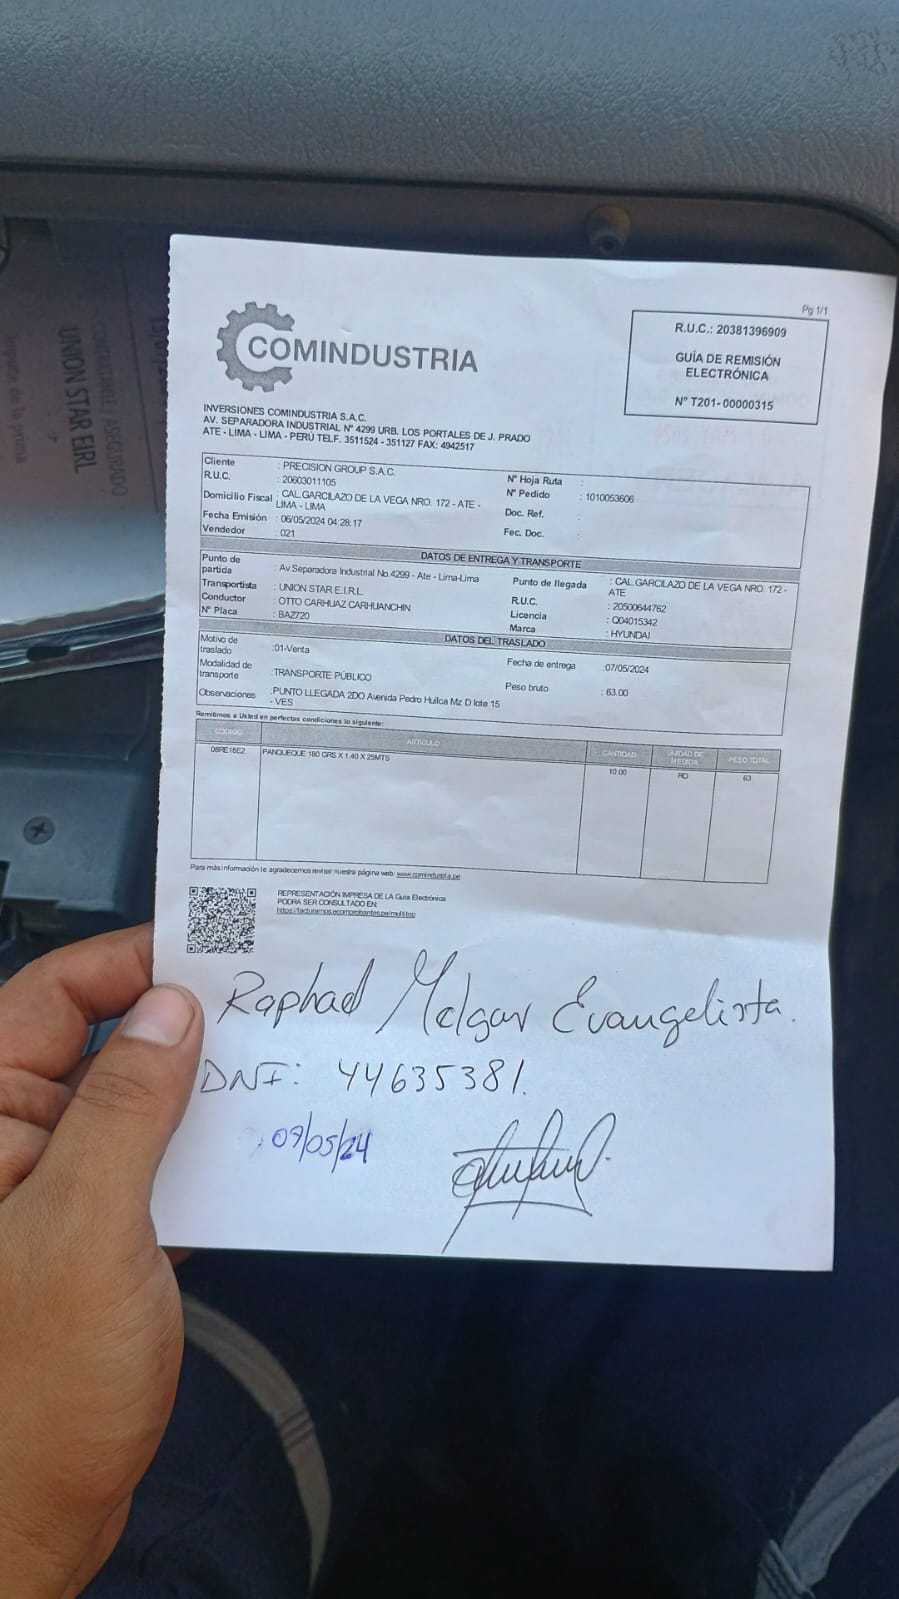 Pg 1/1
COMINDUSTRIA
R.U.C.: 20381396909
GUÍA DE REMISIÓN
ELECTRÓNICA
N° T201- 00000315
INVERSIONES COMINDUSTRIA S.A.C.
AV. SEPARADORA INDUSTRIAL N° 4299 URB. LOS PORTALES DE J. PRADO
ATE - LIMA - LIMA - PERÚ TELF. 3511524 - 351127 FAX: 4942517
Cliente : PRECISION GROUP S.A.C.
R.U.C. : 20603011105
Domicilio Fiscal : CAL.GARCILAZO DE LA VEGA NRO. 172 - ATE -
LIMA - LIMA
Fecha Emisión : 06/05/2024 04:28:17
Vendedor : 021
N° Hoja Ruta :
N° Pedido : 1010053606
Doc. Ref. :
Fec. Doc. :
DATOS DE ENTREGA Y TRANSPORTE
Punto de
partida : Av Separadora Industrial No.4299 - Ate - Lima-Lima
Transportista : UNION STAR E.I.R.L.
Conductor : OTTO CARHUAZ CARHUANCHIN
N° Placa : BAZ720
Punto de llegada : CAL.GARCILAZO DE LA VEGA NRO. 172 -
ATE
R.U.C. : 20500644762
Licencia : Q04015342
Marca : HYUNDAI
DATOS DEL TRASLADO
Motivo de
traslado :01-Venta
Modalidad de
transporte :TRANSPORTE PÚBLICO
Observaciones :PUNTO LLEGADA 2DO Avenida Pedro Huilca Mz D lote 15
- VES
Fecha de entrega :07/05/2024
Peso bruto : 63.00
Remitimos a Usted en perfectas condiciones lo siguiente:
CÓDIGO ARTICULO CANTIDAD UNIDAD DE MEDIDA PESO TOTAL
08RE18E2 PANQUEQUE 180 GRS X 1.40 X 25MTS 10.00 RO 63
Para más información le agradecemos revisar nuestra página web: www.comindustria.pe
REPRESENTACIÓN IMPRESA DE LA Guía Electrónica
PODRA SER CONSULTADO EN:
https://facturamos.ecomprobantes.pe/multitop
Raphael Melgar Evangelista.
DNI: 44635381.
09/05/24
CONTRATANTE / ASEGURADO
UNION STAR EIRL